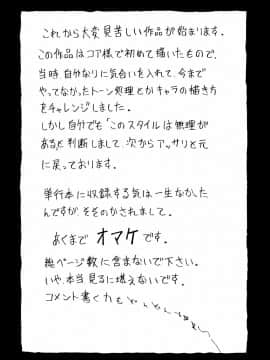 これから大変見苦しい作品が始まります。
この作品はコア様で初めて描いたもので、
当時 自分なりに気合いを入れて、今まで
やってなかったトーン処理とかキャラの描き方
をチャレンジしました。
しかし自分でも「このスタイルは無理が
ある」と判断しまして、次からアッサリと元
に戻っております。
単行本に収録する気は一生なかった
んですが、そそのかされまして。
あくまで オマケ です。
総ページ数に含まないで下さい。
いや、本当見るに堪えないです。
コメント書く力も